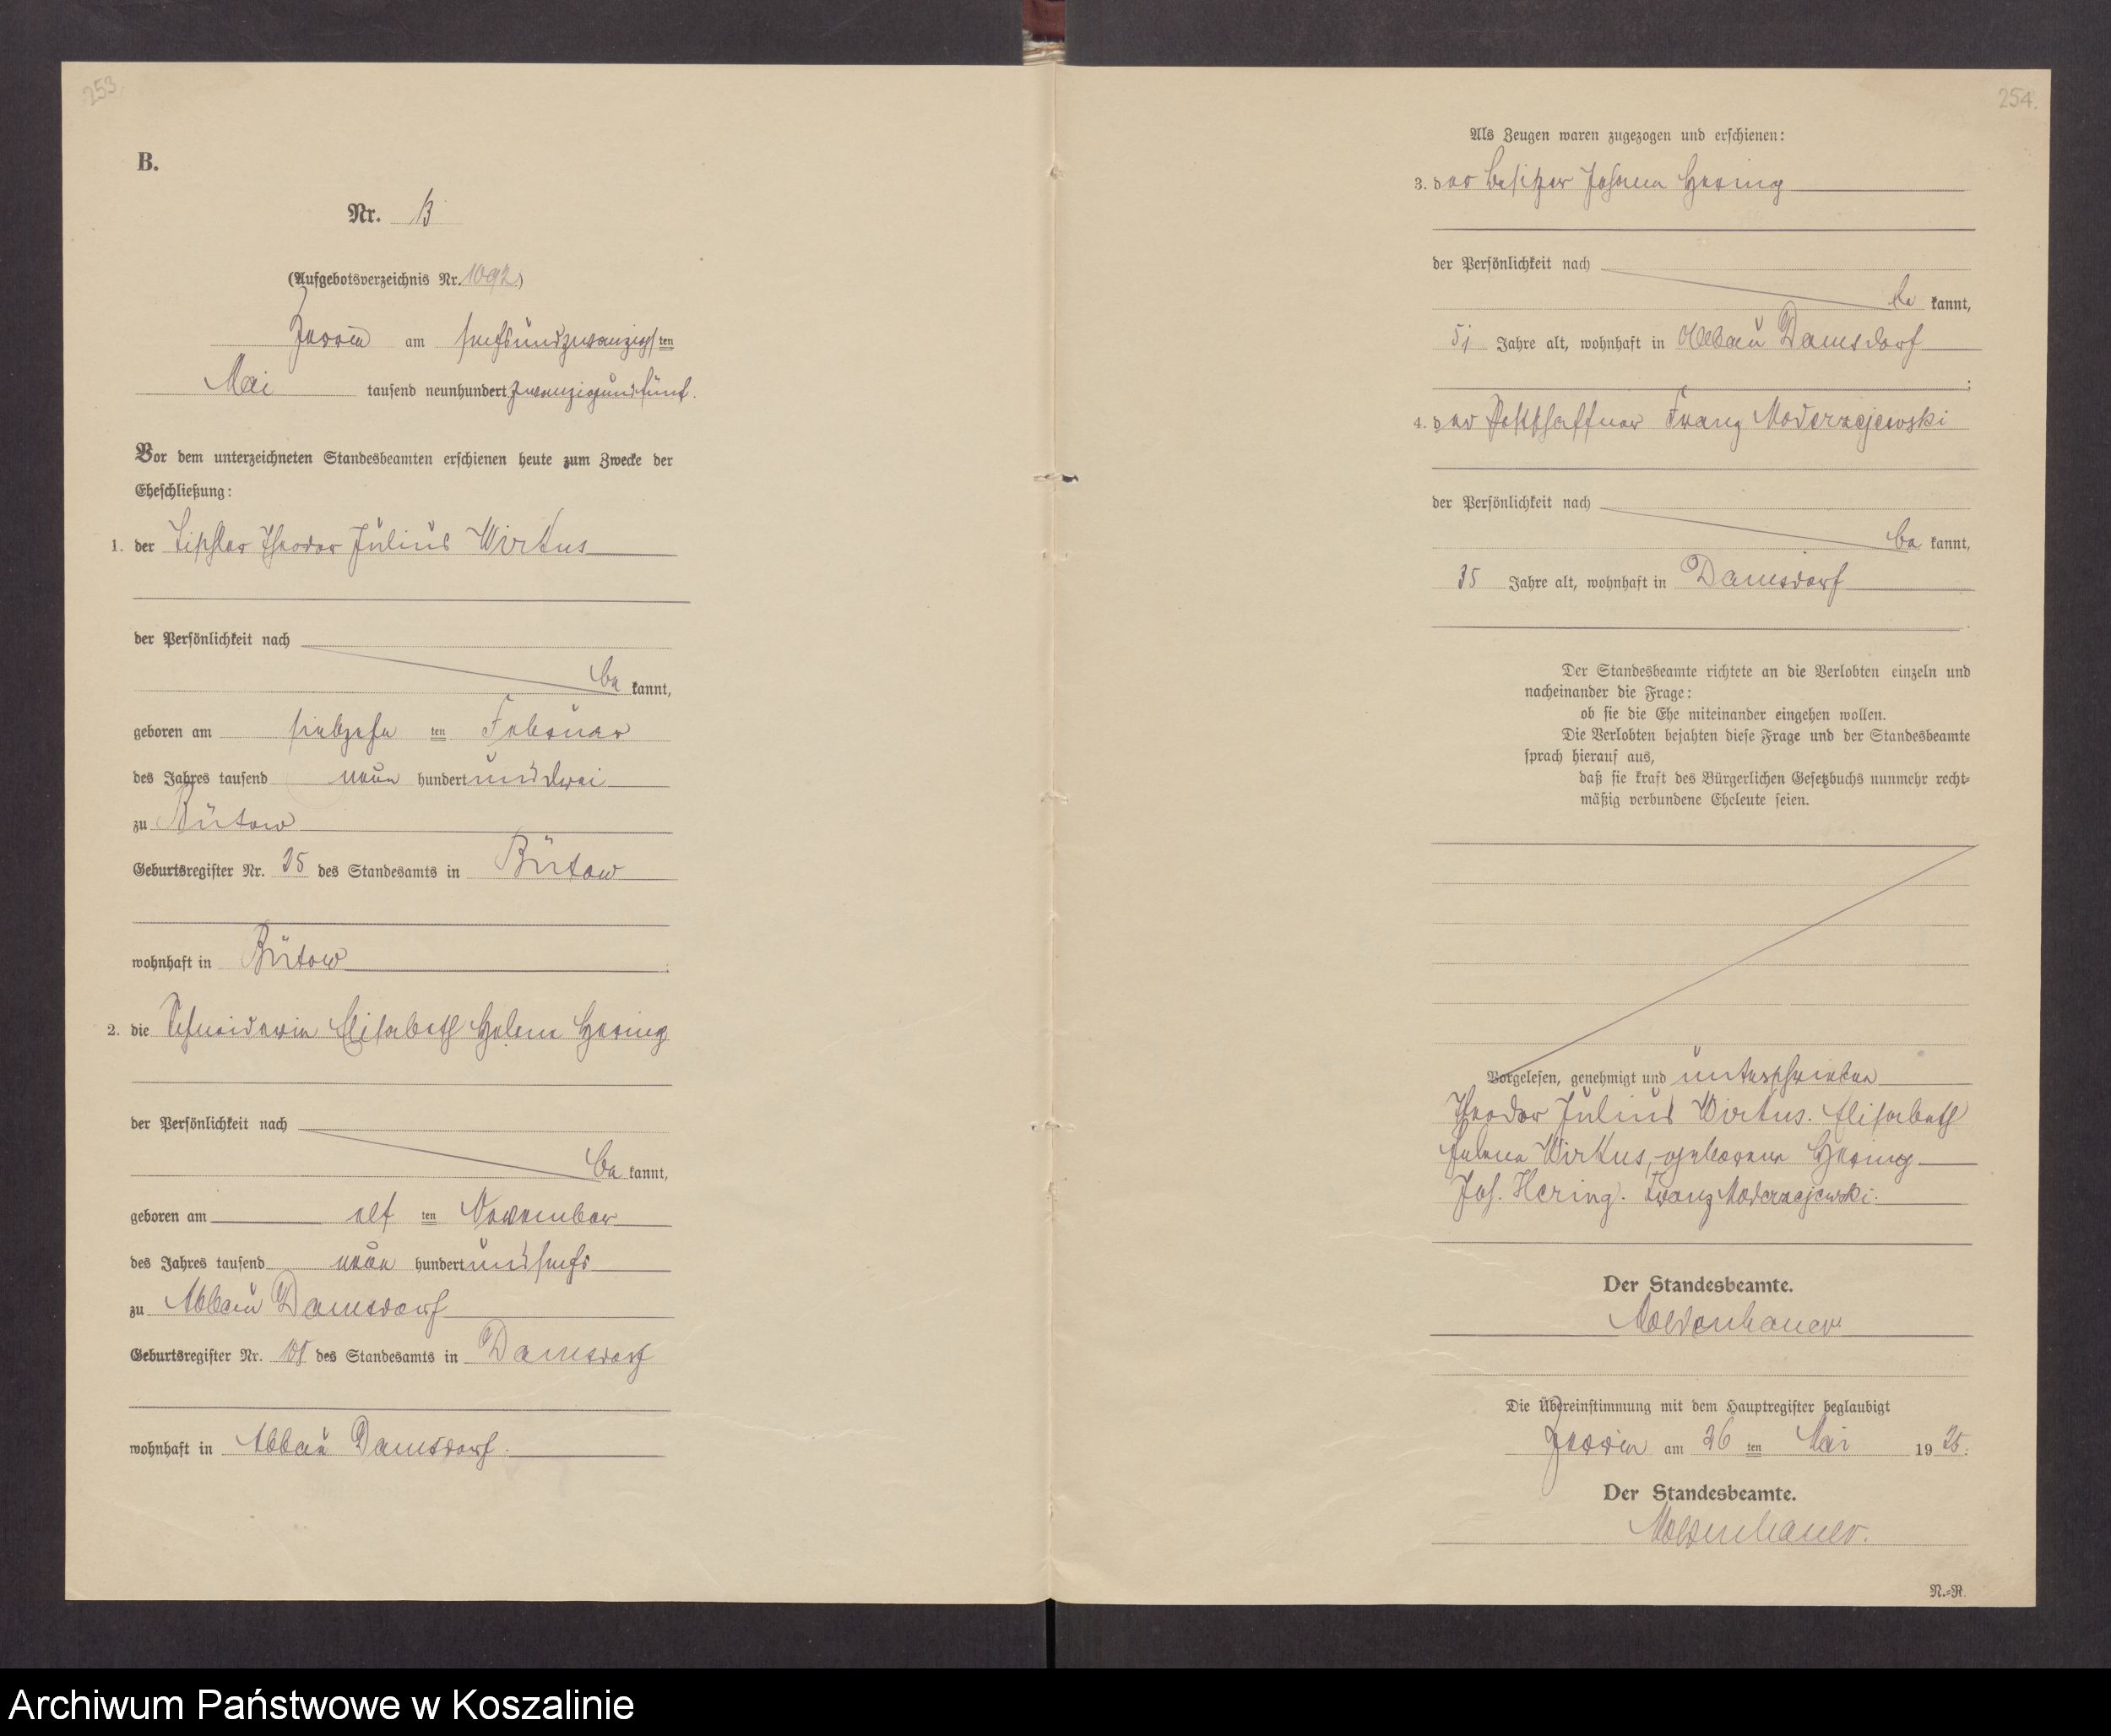 253.
B.
Nr. 13
(Aufgebotsverzeichnis Nr. 1092)
Jassen am sechsundzwanzigsten
Mai tausend neunhundert zwanzigundfünf.
Vor dem unterzeichneten Standesbeamten erschienen heute zum Zwecke der
Eheschließung:
1. der Tischler Theodor Julius Wirkus
der Persönlichkeit nach
be kannt,
geboren am siebzehn ten Februar
des Jahres tausend neun hundert und drei
zu Bütow
Geburtsregister Nr. 25 des Standesamts in Bütow
wohnhaft in Bütow
2. die Schneiderin Elisabeth Helene Hering
der Persönlichkeit nach
be kannt,
geboren am elf ten November
des Jahres tausend neun hundert und sechs
zu Abbau Damsdorf
Geburtsregister Nr. 108 des Standesamts in Damsdorf
wohnhaft in Abbau Damsdorf.
254.
Als Zeugen waren zugezogen und erschienen:
3. der Besitzer Johann Hering
der Persönlichkeit nach
be kannt,
51 Jahre alt, wohnhaft in Abbau Damsdorf
4. der Postschaffner Franz Moderzejewski
der Persönlichkeit nach
be kannt,
35 Jahre alt, wohnhaft in Damsdorf
Der Standesbeamte richtete an die Verlobten einzeln und
nacheinander die Frage:
ob sie die Ehe miteinander eingehen wollen.
Die Verlobten bejahten diese Frage und der Standesbeamte
sprach hierauf aus,
daß sie kraft des Bürgerlichen Gesetzbuchs nunmehr recht-
mäßig verbundene Eheleute seien.
Vorgelesen, genehmigt und unterschrieben
Theodor Julius Wirkus. Elisabeth
Helene Wirkus, geborene Hering
Joh. Hering. Franz Moderzejewski.
Der Standesbeamte.
Moldenhauer
Die Übereinstimmung mit dem Hauptregister beglaubigt
Jassen am 26 ten Mai 1925.
Der Standesbeamte.
Moldenhauer.
N.-R.
Archiwum Państwowe w Koszalinie